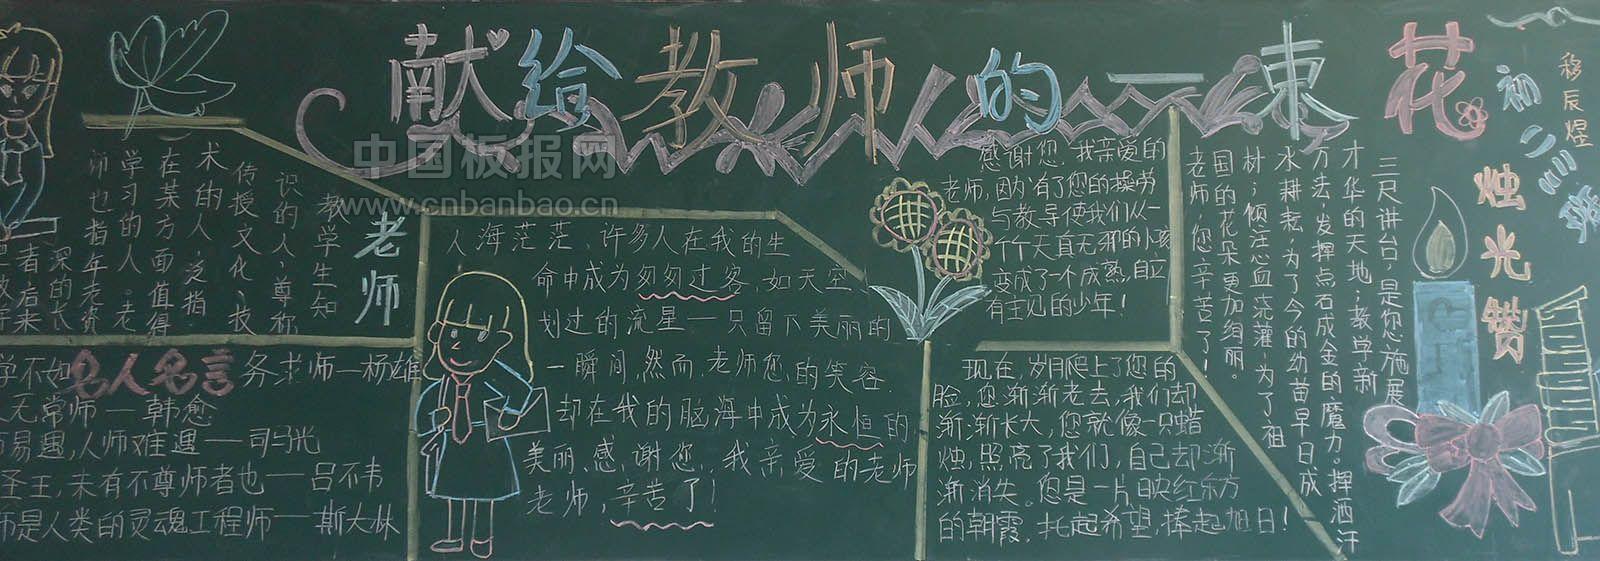 献给教师的一束花
初二三班
移辰煜
烛光赞
三尺讲台，是您施展
才华的天地；教学新
方法，发挥点石成金的魔力。挥洒汗
水耕耘，为了今的幼苗早日成
材；倾注心血浇灌，为了祖
国的花朵更加绚丽。
老师，您辛苦了！
感谢您，我亲爱的
老师，因为有了您的操劳
与教导使我们从一
个个天真无邪的小孩
变成了一个成熟，自立
有主见的少年！
现在，岁月爬上了您的
脸，您渐渐老去，我们却
渐渐长大，您就像一只蜡
烛，照亮了我们，自己却渐
渐消失。您是一片映红东方
的朝霞，托起希望，捧起旭日！
人海茫茫、许多人在我的生
命中成为匆匆过客，如天空
划过的流星——只留下美丽的
一瞬间，然而，老师您的笑容
却在我的脑海中成为永恒的
美丽、感谢您，我亲爱的老师
老师，辛苦了！
老师
教学生知
识的人，尊称
传授文化、技
术的人，泛指
在某方面值得
学习的人。老
师也指年老资
深的长
者后来
名人名言
学不如务求师—杨雄
无常师—韩愈
易遇，人师难遇——司马光
圣王，未有不尊师者也——吕不韦
师是人类的灵魂工程师——斯大林
中国板报网
www.cnbanbao.cn